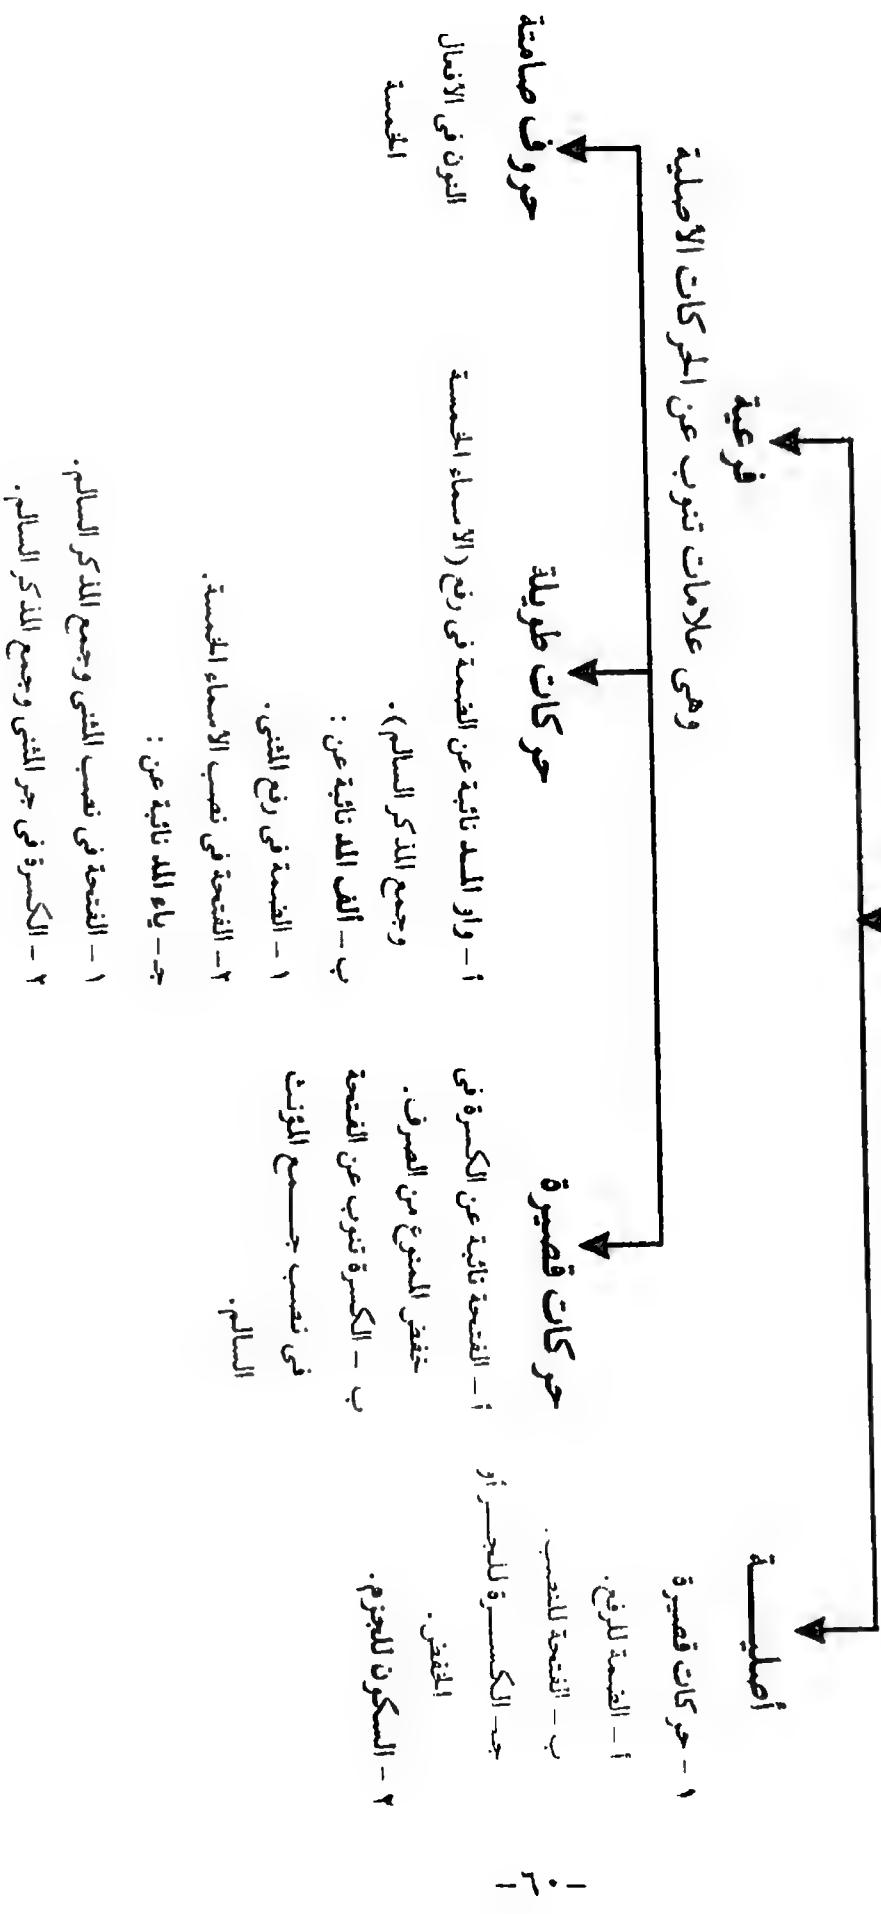 أصليـــة
١ - حركات قصيرة
أ - الضمة للرفع.
ب - الفتحة للنصب.
جـ- الكســرة للجــر أو
الخفض.
٢ - السكون للجزم.
فرعية
وهى علامات تنوب عن الحركات الأصلية
حركات قصيرة
أ - الفتحة نائبة عن الكسرة فى
خفض الممنوع من الصرف.
ب - الكسرة تنوب عن الفتحة
فى نصب جـــمع المؤنث
السالم.
حركات طويلة
أ - واو المــد نائبة عن الضمة فى رفع (الأسماء الخمسة
وجمع المذكر السالم).
ب - ألف المد نائبة عن :
١ - الضمة فى رفع المثنى.
٢ - الفتحة فى نصب الأسماء الخمسة.
جـ - ياء المد نائبة عن :
١ - الفتحة فى نصب المثنى وجمع المذكر السالم.
٢ - الكسرة فى جر المثنى وجمع المذكر السالم.
حروف صامتة
النون فى الأفعال
الخمسة
-٦٠-